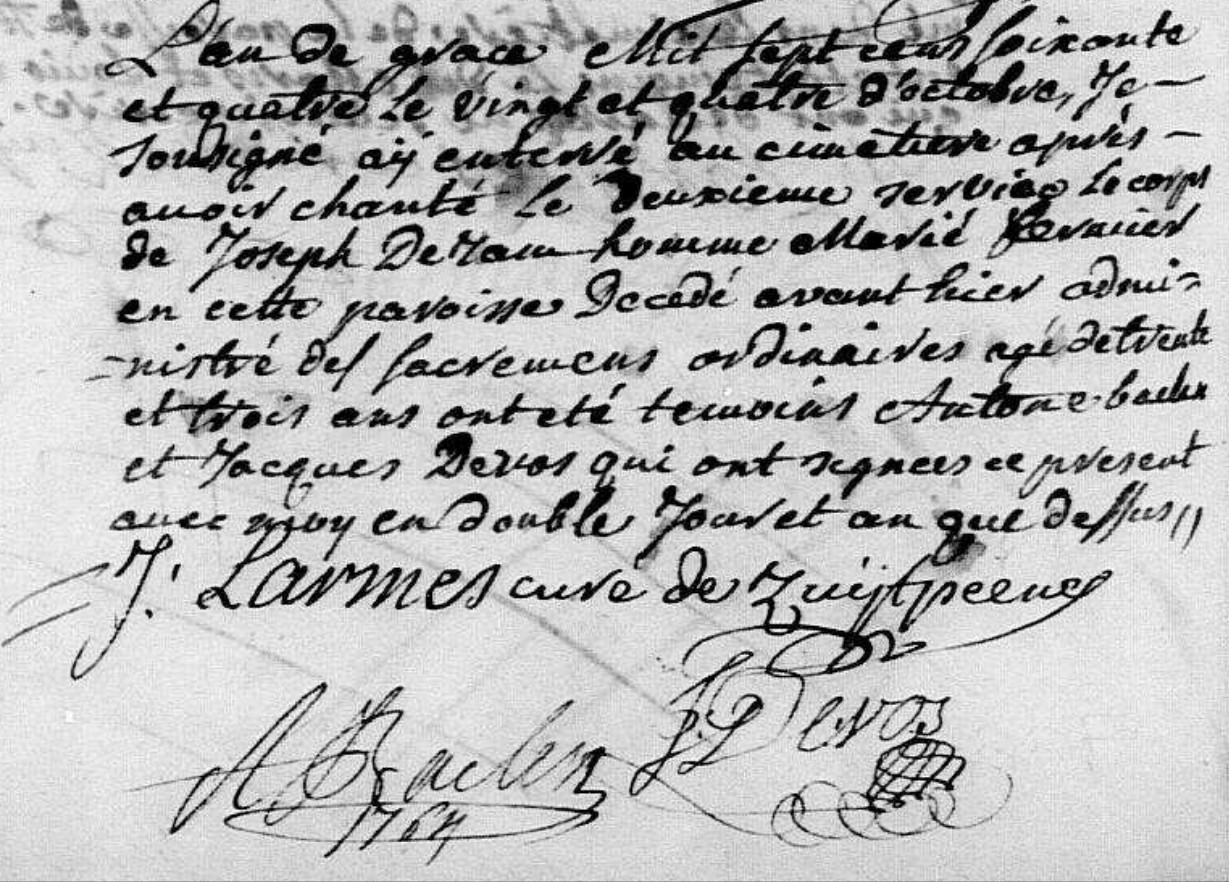 L'an de grace Mil sept cens soixante
et quatre le vingt et quatre d'octobre, Je
sousigné aÿ enterré au cimetiere après
avoir chanté le deuxieme service le corps
de Joseph DeZam homme Marié fermier
en cette paroisse Decedé avant hier admi-
-nistré des sacremens ordinaires agé de trente
et trois ans ont eté temoins Antone baelen
et Jacques Devos qui ont signees ce present
avec moy en double Jour et an que dessus
J. Larmes curé de Zuÿtpeene
A Baelen J Devos
1764